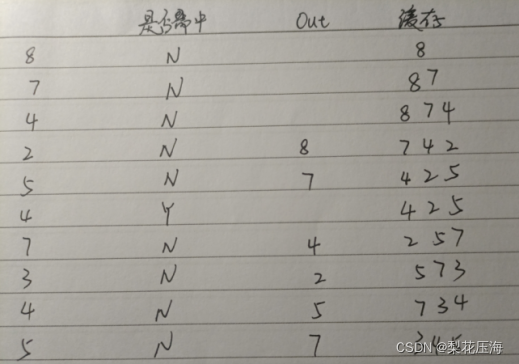 是否命中 Out 缓存
8 N 8
7 N 8 7
4 N 8 7 4
2 N 8 7 4 2
5 N 7 4 2 5
4 Y 4 2 5
7 N 4 2 5 7
3 N 2 5 7 3
4 N 5 7 3 4
5 N 7 3 4 5
CSDN @梨花压海